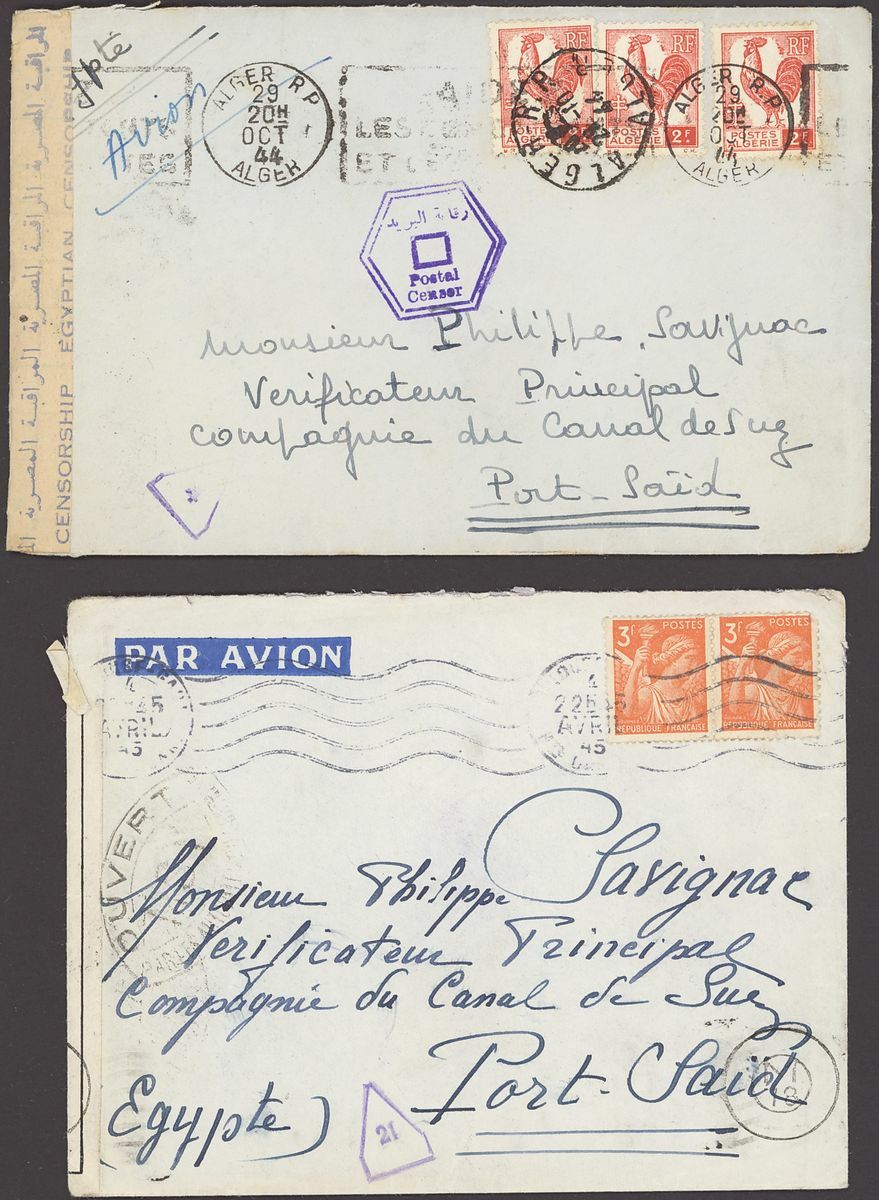 Egypte
Avion
ALGER R.P.
29
20H
OCT
44
ALGER
RF
POSTES
ALGERIE
RF
POSTES
ALGERIE
2F
RF
POSTES
ALGERIE
2F
ALGER R.P.
29
ALGER
LES
ET
المراقبة المصرية المراقبة المصرية المراقبة المصرية
CENSORSHIP EGYPTIAN CENSORSHIP
رقابة البريد
Postal
Censor
Monsieur Philippe Savignac
Verificateur Principal
Compagnie du Canal de Suez
Port-Saïd
PAR AVION
3F
POSTES
RÉPUBLIQUE FRANÇAISE
3F
POSTES
RÉPUBLIQUE FRANÇAISE
AVRIL
45
OUVERT
Monsieur Philippe Savignac
Verificateur Principal
Compagnie du Canal de Suez
Port-Saïd
(Egypte)
21